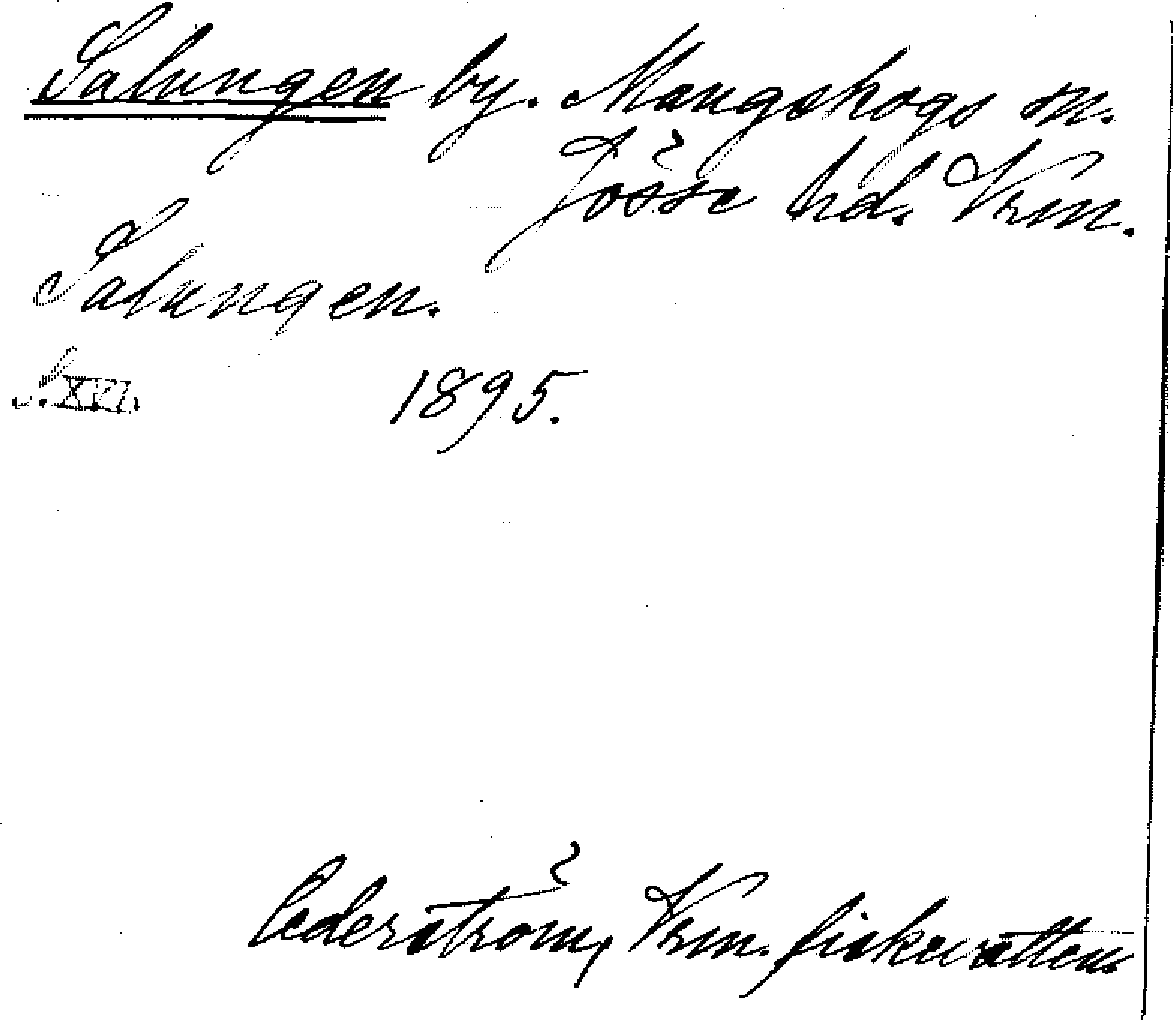 Salungen by. Mangskogs sn.
Jösse hd. Vrm.
Salungen.
S. XVI.
1895.
Cederström, Vrm. fiskevatten